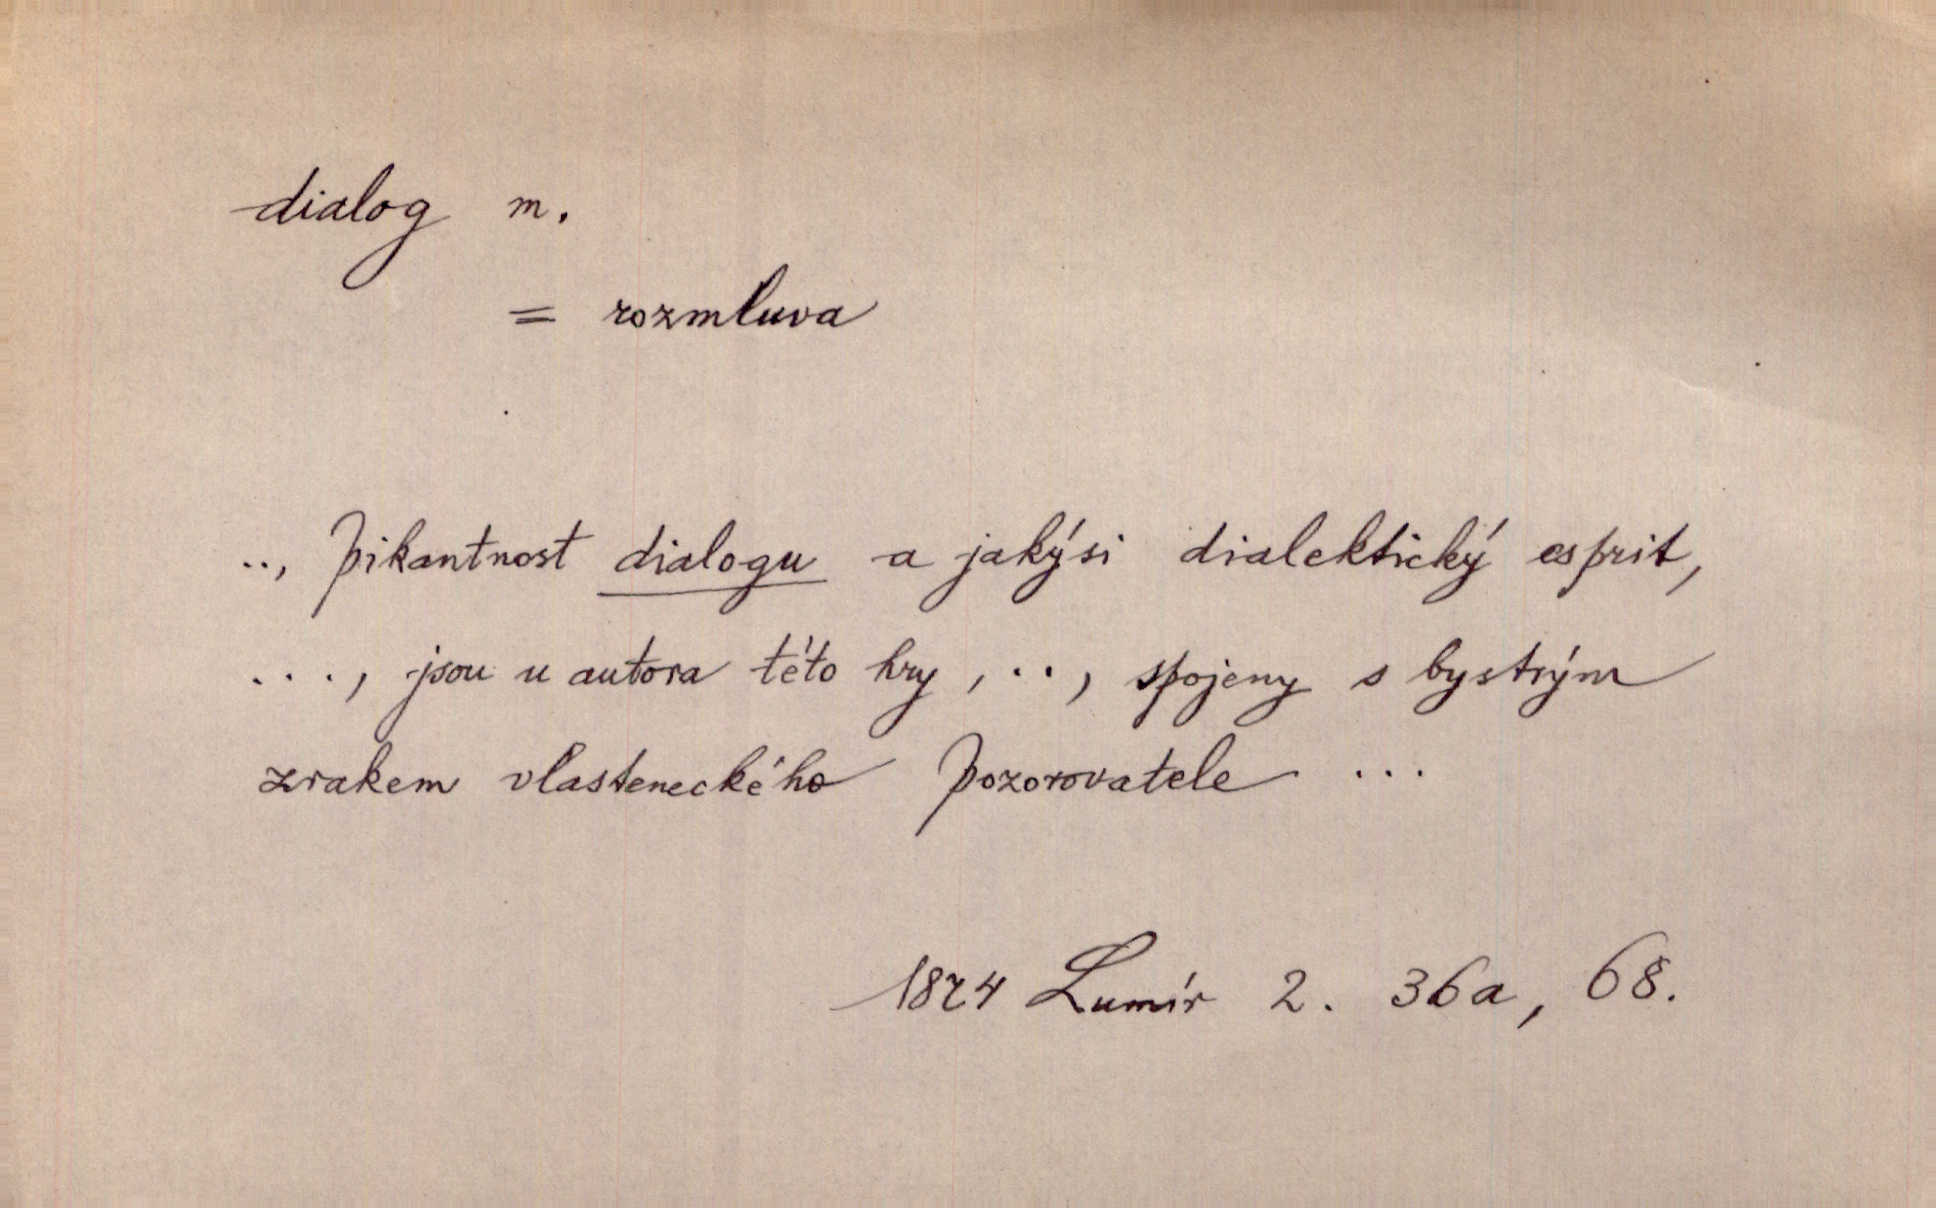 dialog m.
= rozmluva
.., pikantnost dialogu a jakýsi dialektický esprit,
...., jsou u autora této hry, .., spojeny s bystrým
zrakem vlasteneckého pozorovatele ...
1874 Lumír 2. 36a, 68.